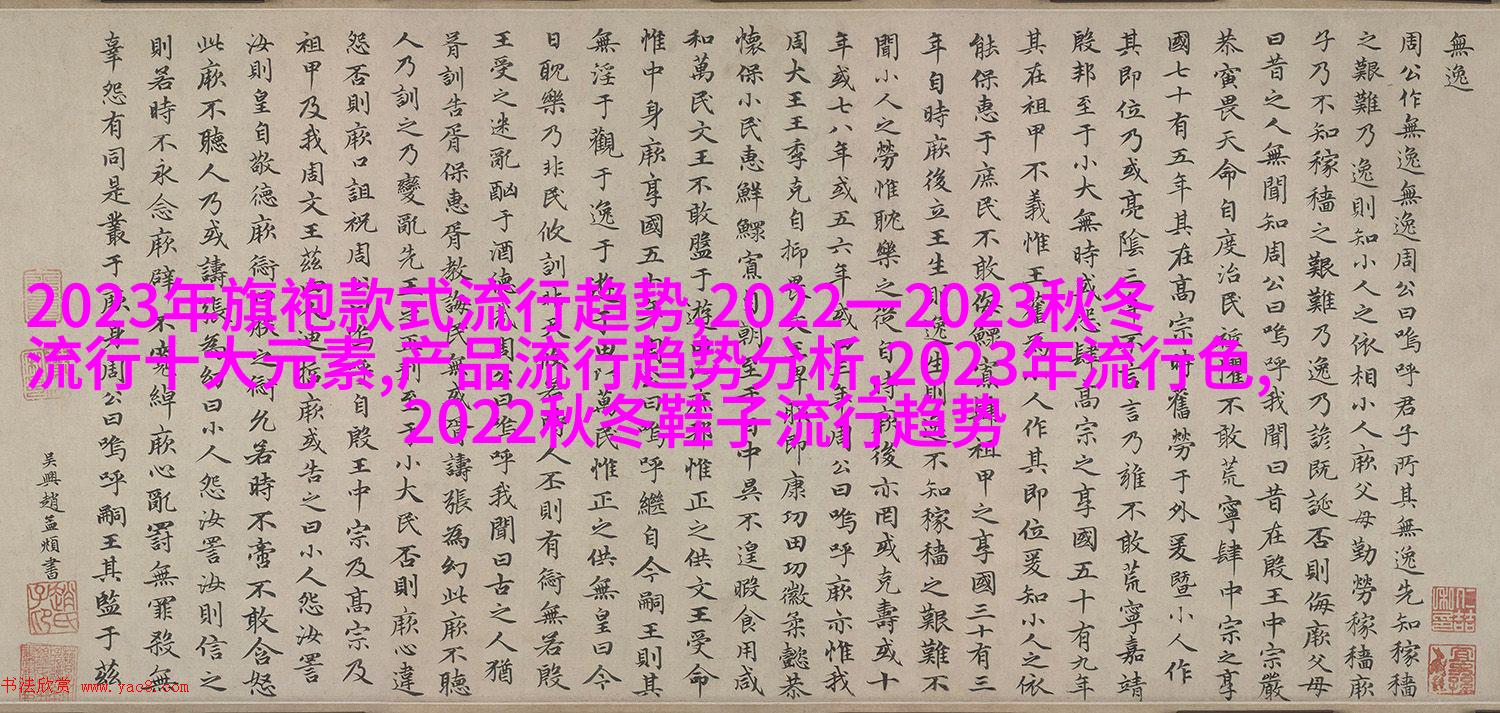 無逸
周公作無逸無逸周公曰嗚呼君子所其無逸先知稼穡
之艱難乃逸則知小人之依相小人厥父母勤勞稼穡厥
子乃不知稼穡之艱難乃逸乃諺既誕否則侮厥父母
曰昔之人無聞知周公曰嗚呼我聞曰昔在殷王中宗嚴
恭寅畏天命自度治民祗懼不敢荒寧肆中宗之享
國七十有五年其在高宗時舊勞于外爰暨小人作
其即位乃或亮陰三年不言言乃雍不敢荒寧嘉靖
殷邦至于小大無時或怨肆高宗之享國五十有九年
其在祖甲不義惟王舊為小人作其即位爰知小人之依
能保惠于庶民不敢侮鰥寡肆祖甲之享國三十有三
年自時厥後立王生則逸生則逸不知稼穡之艱難不
聞小人之勞惟耽樂之從自時厥後亦罔或克壽或十
年或七八年或五六年或四三年周公曰嗚呼厥亦惟我
周大王王季克自抑畏文王卑服即康功田功徽柔懿恭
懷保小民惠鮮鰥寡自朝至于日中昃不遑暇食用咸
和萬民文王不敢盤于遊田以庶邦惟正之供文王受命
惟中身厥享國五十年周公曰嗚呼繼自今嗣王則其
無淫于觀于逸于遊于田以萬民惟正之供無皇曰今
日耽樂乃非民攸訓非天攸若時人丕則有愆無若殷
王受之迷亂酗于酒德哉周公曰嗚呼我聞曰古之人猶
胥訓告胥保惠胥教誨民無或胥譸張為幻此厥不聽
人乃訓之乃變亂先王之正刑至于小大民否則厥心違
怨否則厥口詛祝周公曰嗚呼自殷王中宗及高宗及
祖甲及我周文王茲四人迪哲厥或告之曰小人怨汝詈
汝則皇自敬德厥愆曰朕之愆允若時不啻不敢含怒
此厥不聽人乃或譸張為幻曰小人怨汝詈汝則信之
則若時不永念厥辟不寬綽厥心亂罰無罪殺無
辜怨有同是叢于厥身周公曰嗚呼嗣王其監于茲
吳興趙孟頫書
2023年旗袍款式流行趋势,2022一2023秋冬
流行十大元素,产品流行趋势分析,2023年流行色,
2022秋冬鞋子流行趋势
书法欣赏 www.yac8.com